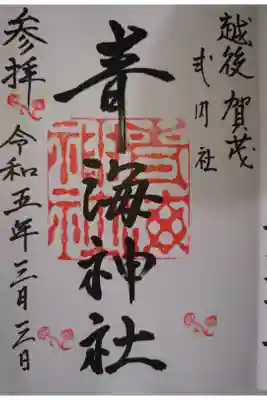 越後 賀茂
式内社
青海神社
青海神社
参拝
令和五年三月三日